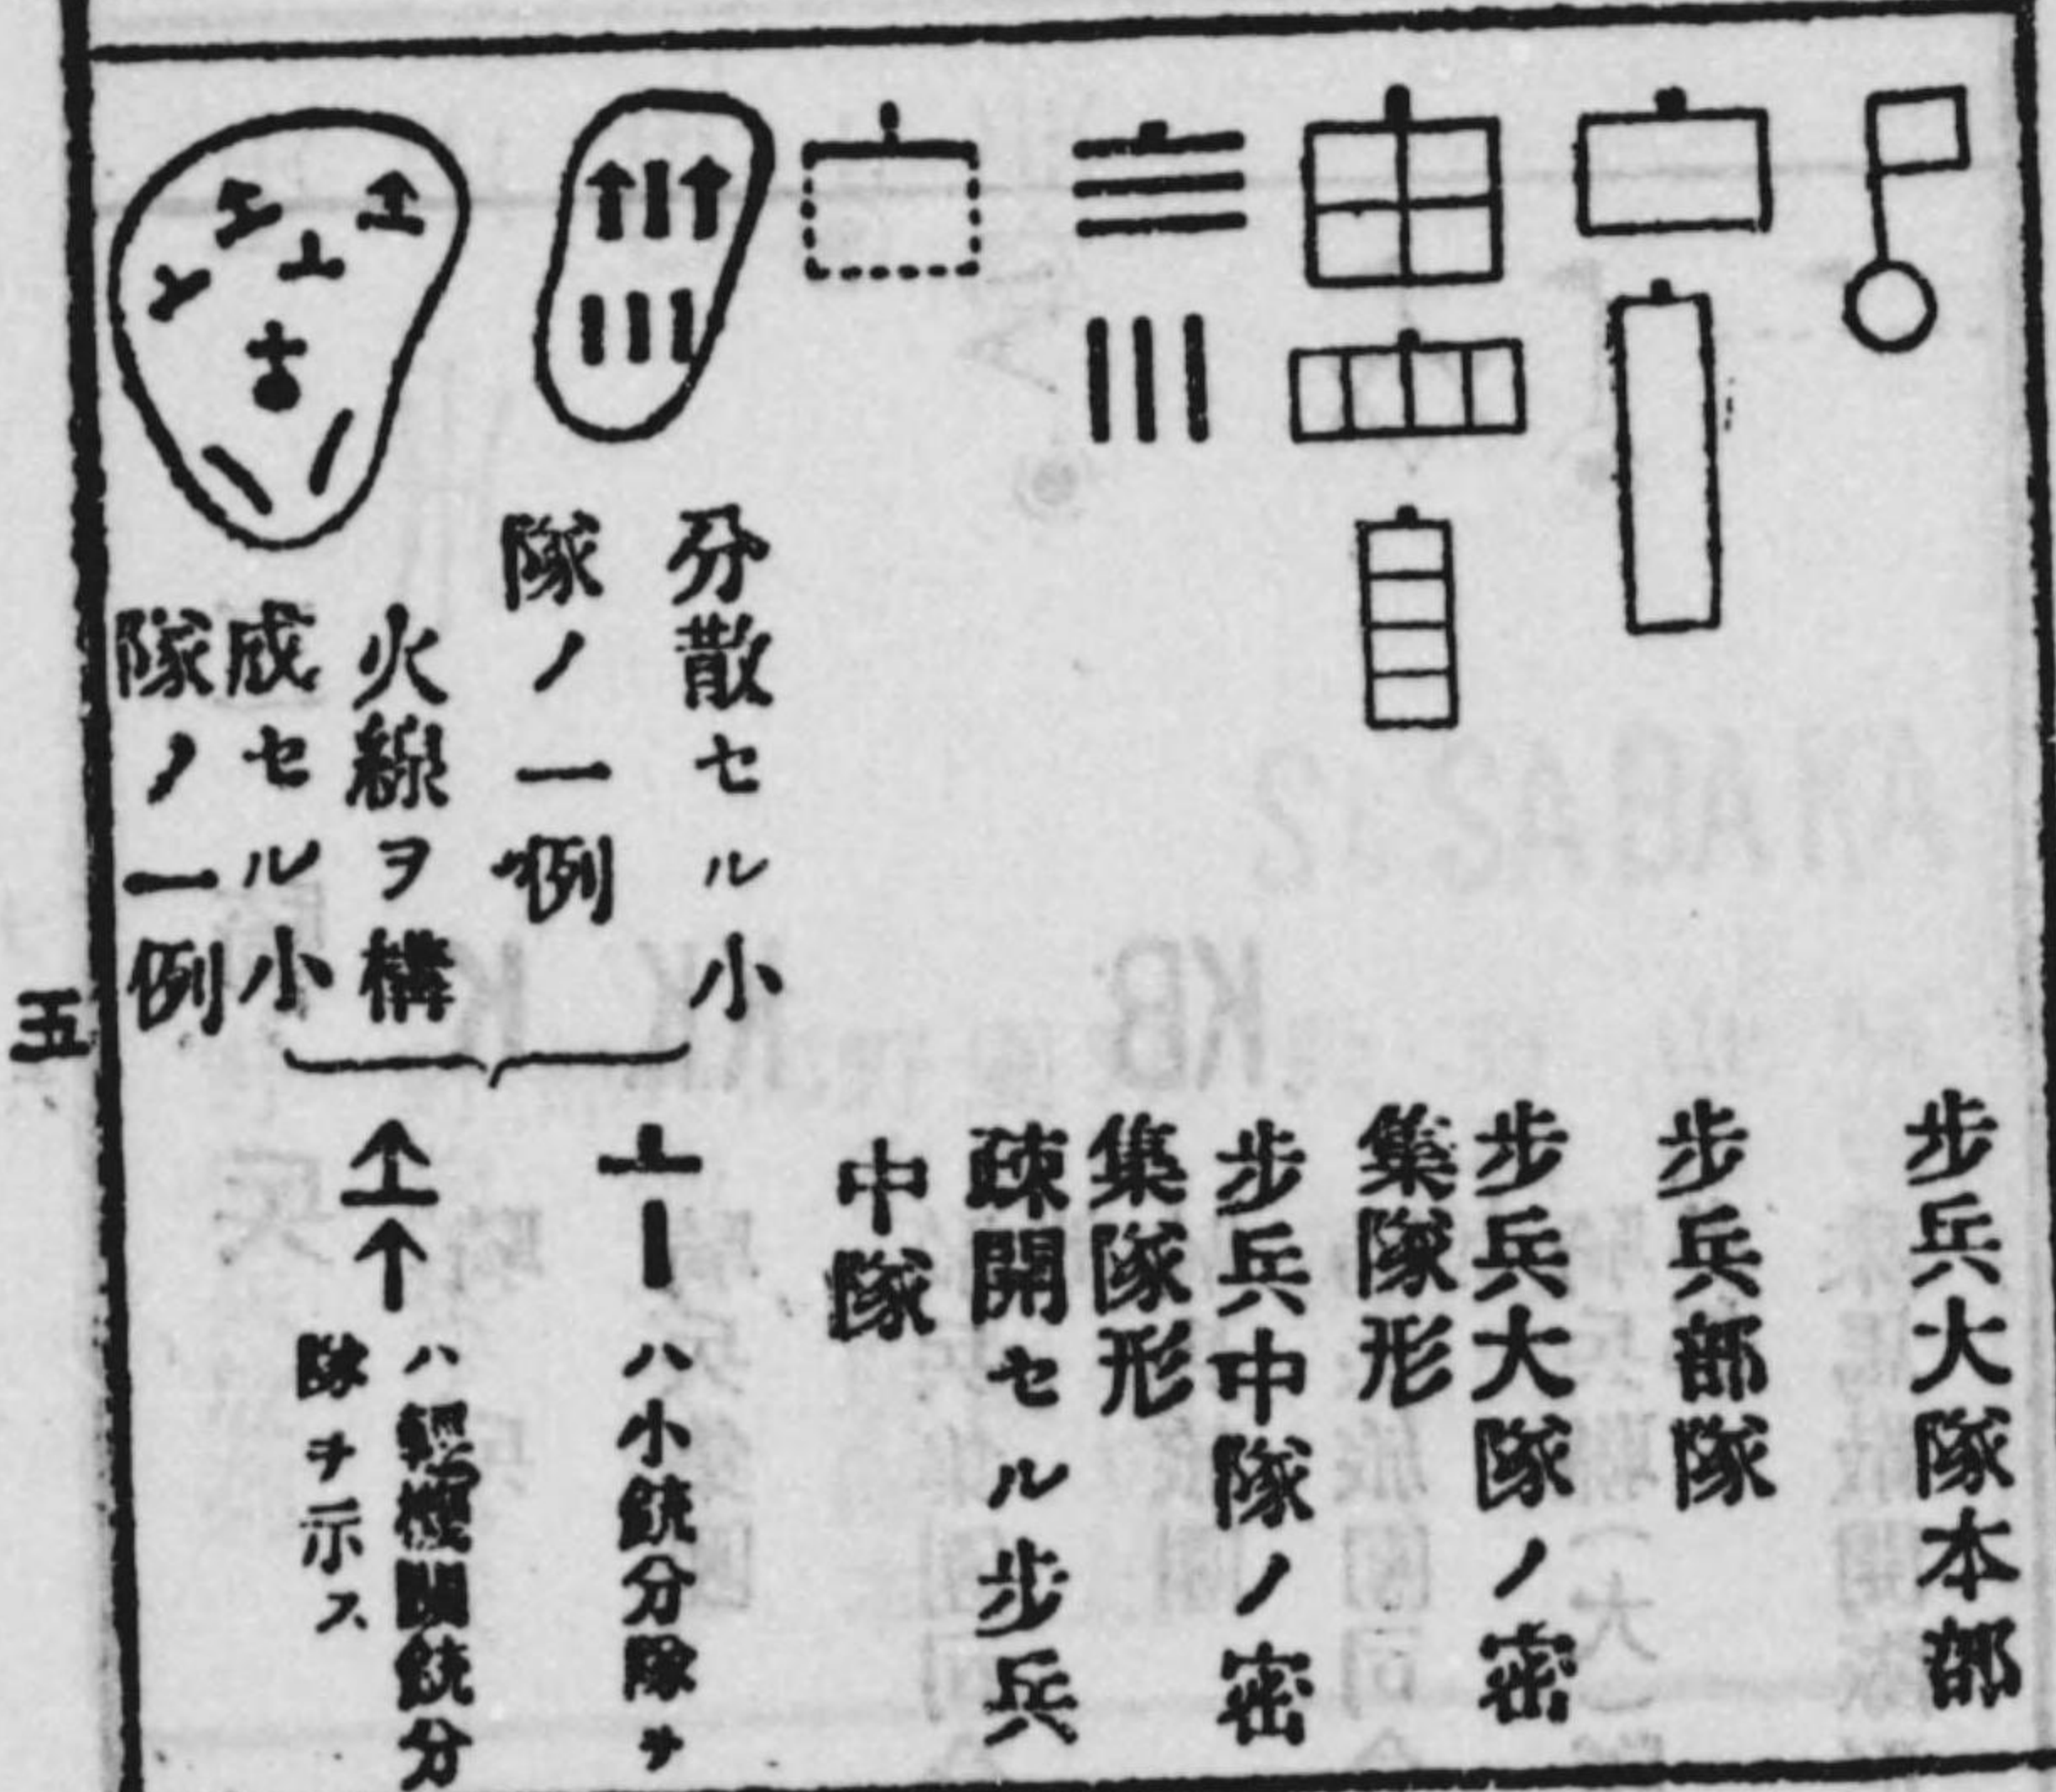 步兵大隊本部
步兵部隊
步兵大隊ノ密
集隊形
步兵中隊ノ密
集隊形
疎開セル步兵
中隊
分散セル小
隊ノ一例
火線ヲ構
成セル小
隊ノ一例
ハ小銃分隊ヲ
ハ輕機關銃分
隊ヲ示ス
五